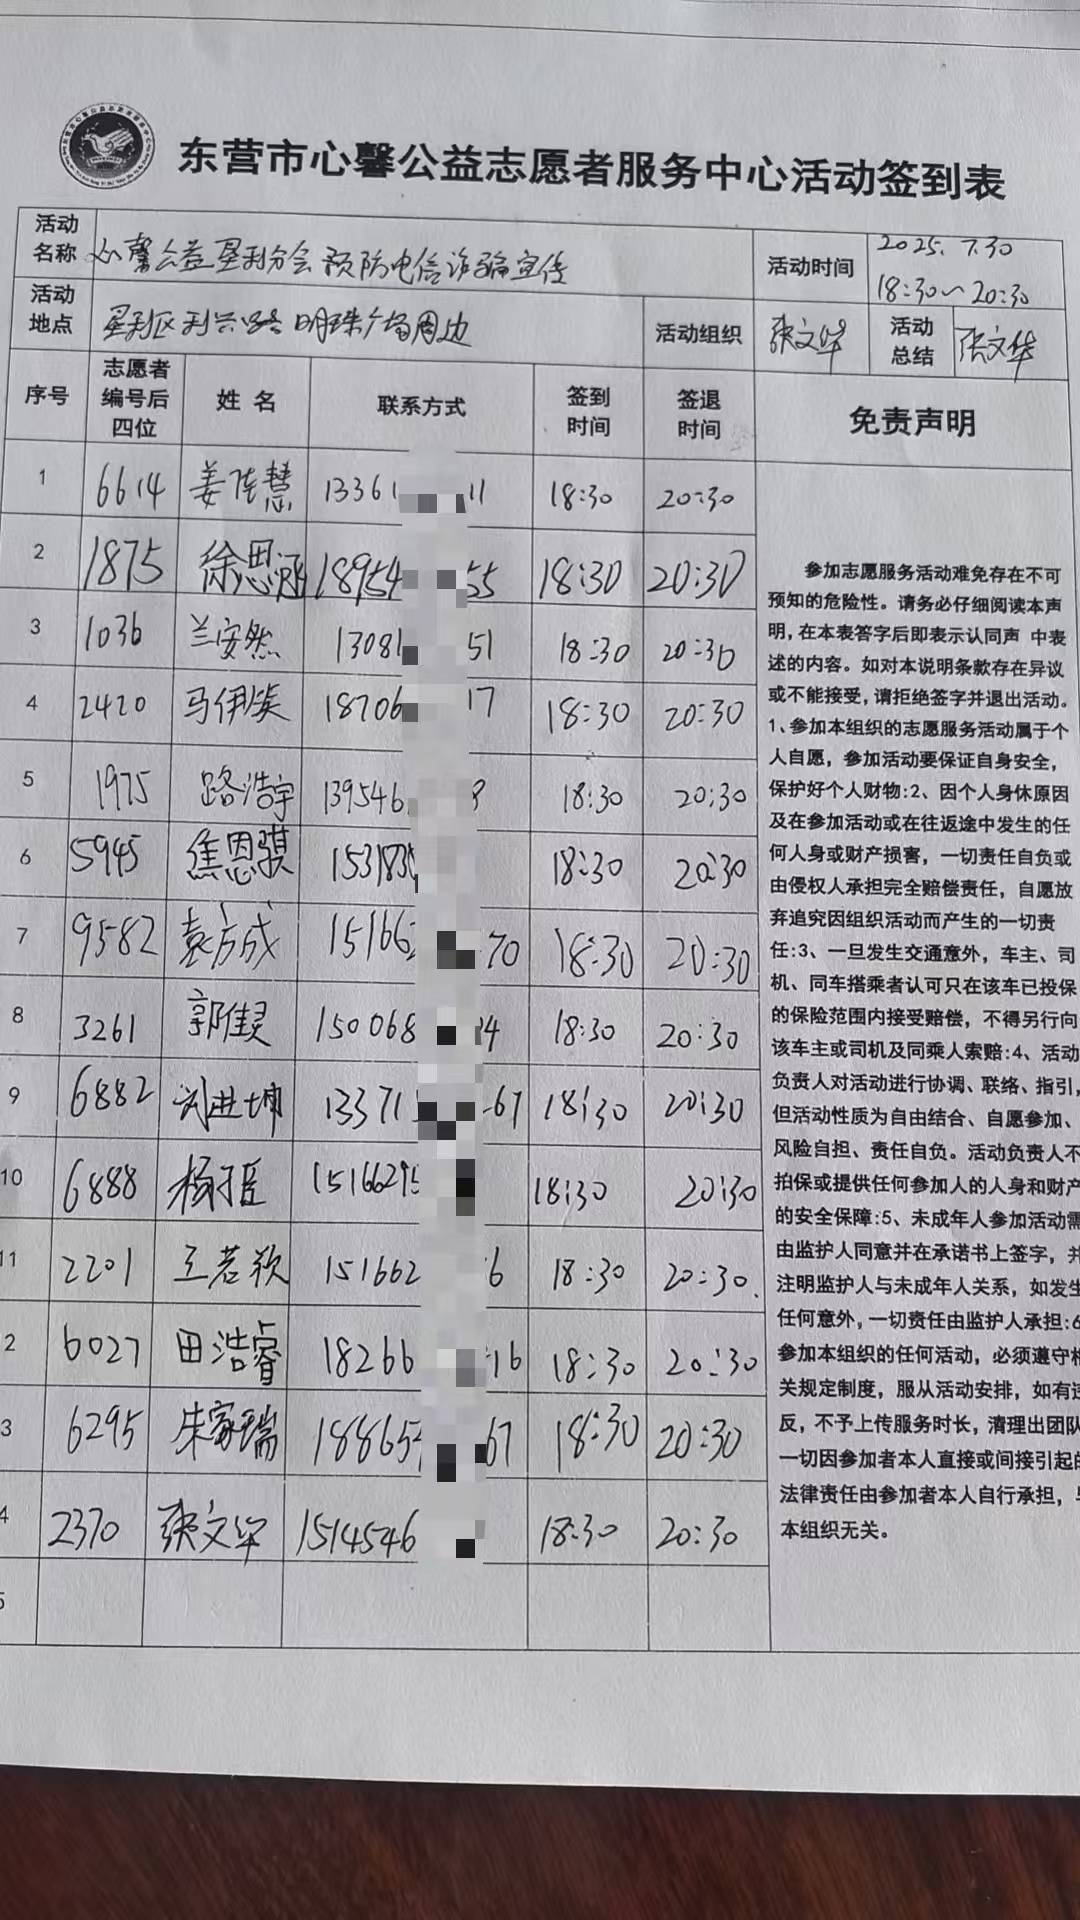 东营市心馨公益志愿者服务中心活动签到表
活动名称 心馨公益垦利分会预防电信诈骗宣传 活动时间 2025.7.30 18:30～20:30
活动地点 垦利区利兴路明珠广场周边 活动组织 张文华 活动总结 张文华
序号 志愿者编号后四位 姓名 联系方式 签到时间 签退时间 免责声明
1 6614 姜佳慧 13361 11 18:30 20:30
2 1875 徐思涵 18954 55 18:30 20:30
3 1036 兰安然 13081 51 18:30 20:30
4 2420 马伊 18706 17 18:30 20:30
5 1975 路浩宇 139546 8 18:30 20:30
6 5945 焦恩骐 153183 18:30 20:30
7 9582 袁方成 151662 70 18:30 20:30
8 3261 郭佳灵 150068 4 18:30 20:30
9 6882 刘进坤 13371 67 18:30 20:30
10 6888 杨 15166295 18:30 20:30
11 2201 王若欣 151662 6 18:30 20:30
2 6027 田浩睿 18266 16 18:30 20:30
3 6295 朱家瑞 188654 67 18:30 20:30
4 2370 张文华 1514546 18:30 20:30
5
参加志愿服务活动难免存在不可
预知的危险性。请务必仔细阅读本声
明,在本表答字后即表示认同声 中表
述的内容。如对本说明条款存在异议
或不能接受,请拒绝签字并退出活动。
1、参加本组织的志愿服务活动属于个
人自愿，参加活动要保证自身安全，
保护好个人财物:2、因个人身休原因
及在参加活动或在往返途中发生的任
何人身或财产损害，一切责任自负或
由侵权人承担完全赔偿责任，自愿放
弃追究因组织活动而产生的一切责
任:3、一旦发生交通意外，车主、司
机、同车搭乘者认可只在该车已投保
的保险范围内接受赔偿，不得另行向
该车主或司机及同乘人索赔:4、活动
负责人对活动进行协调、联络、指引,
但活动性质为自由结合、自愿参加、
风险自担、责任自负。活动负责人不
拍保或提供任何参加人的人身和财产
的安全保障:5、未成年人参加活动需
由监护人同意并在承诺书上签字，并
注明监护人与未成年人关系，如发生
任何意外,一切责任由监护人承担:6
参加本组织的任何活动，必须遵守相
关规定制度，服从活动安排，如有违
反，不予上传服务时长，清理出团队
一切因参加者本人直接或间接引起的
法律责任由参加者本人自行承担，与
本组织无关。